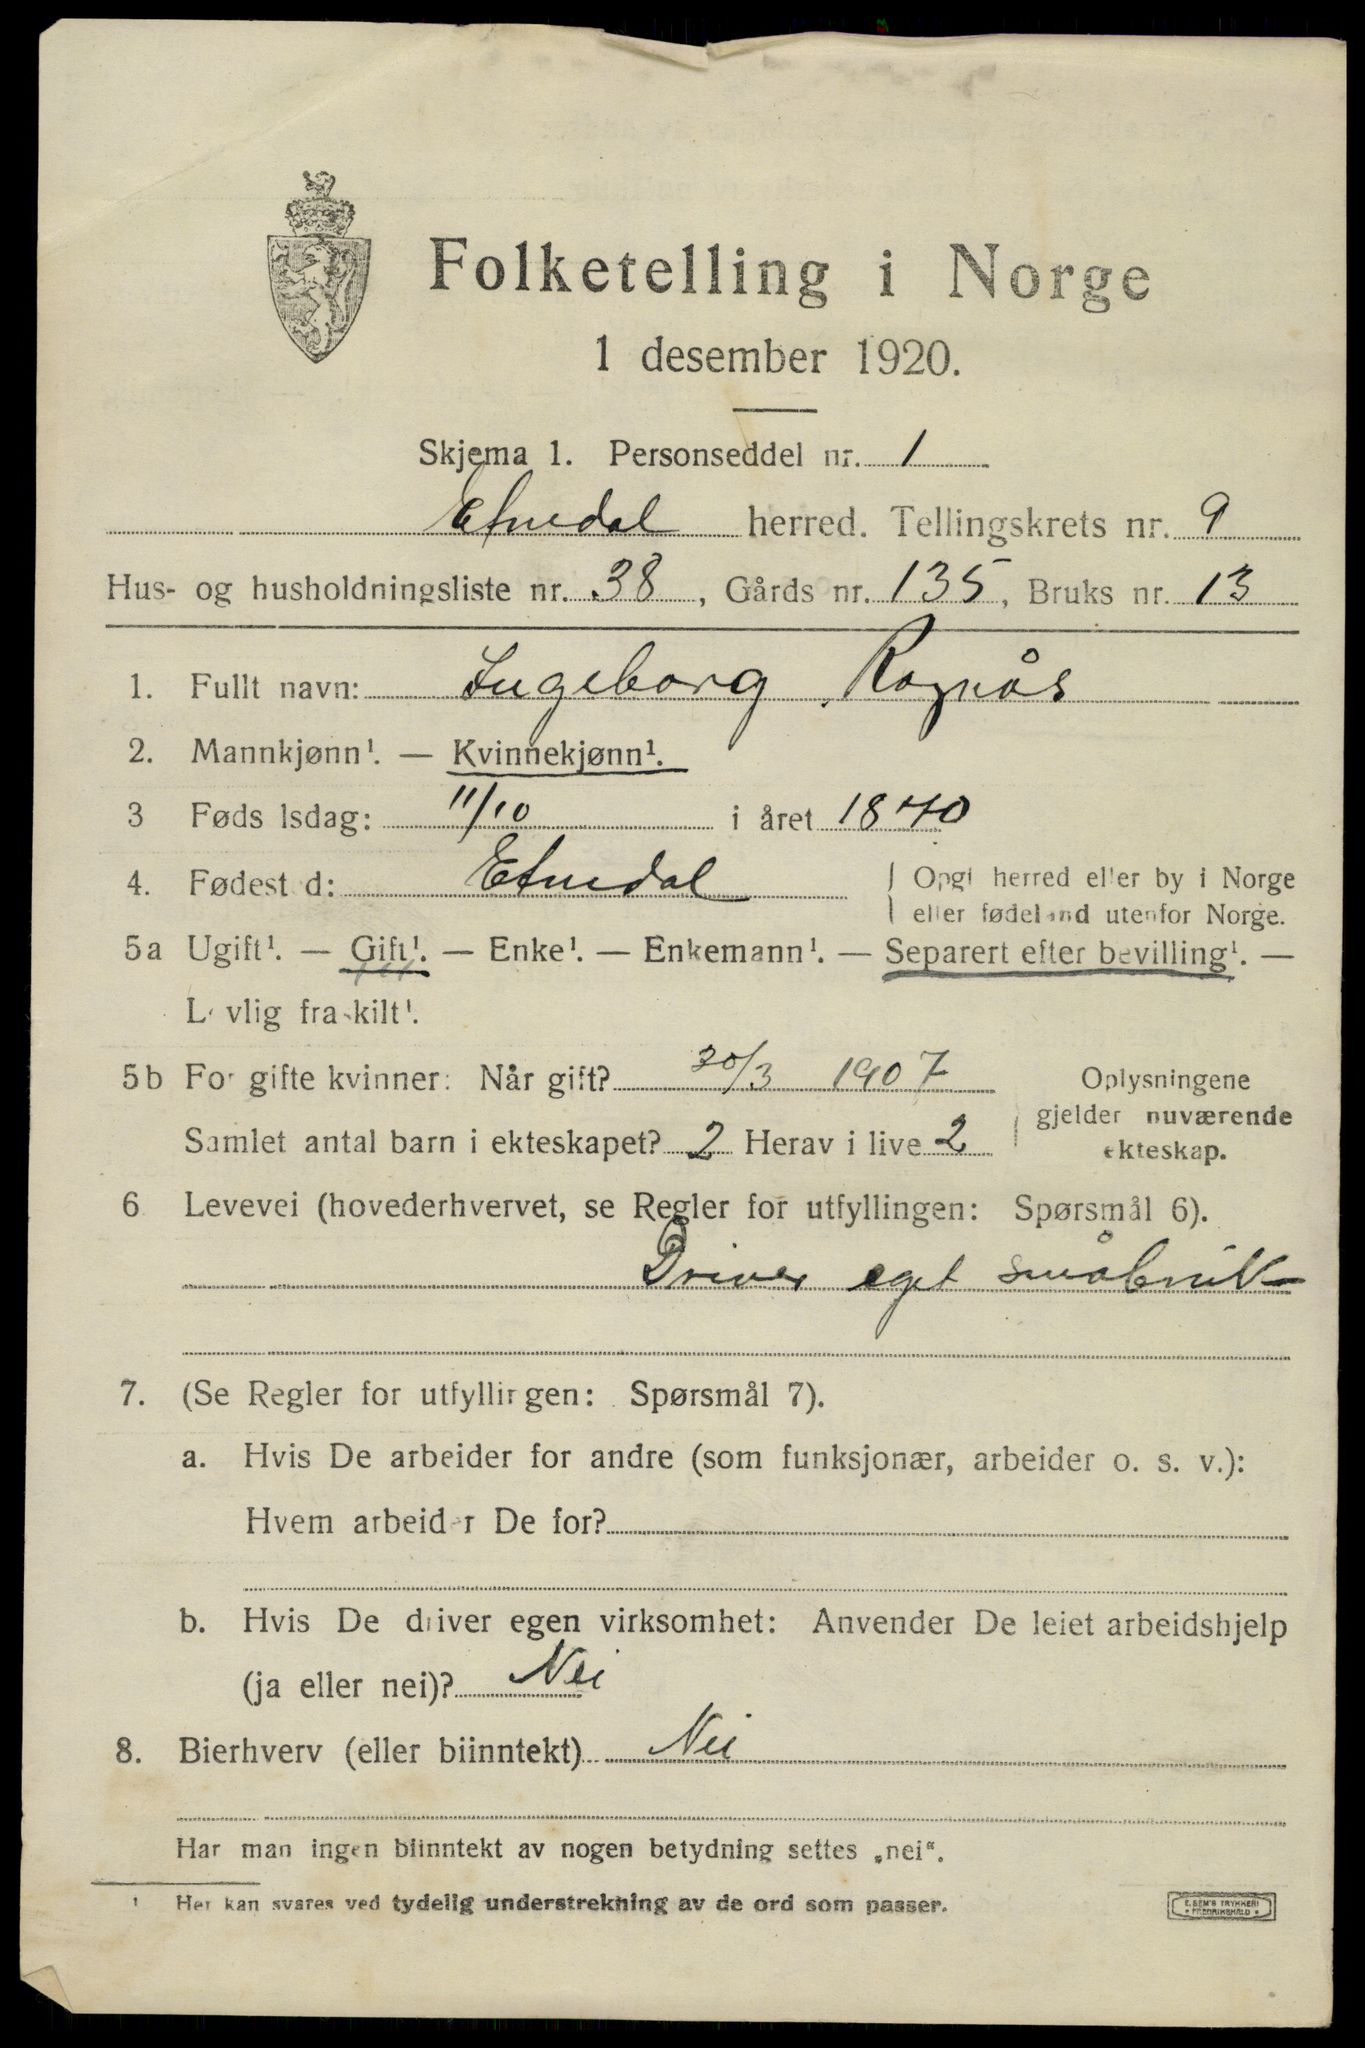 Folketelling i Norge
1 desember 1920.
Skjema 1. Personseddel nr. 1
Etnedal herred. Tellingskrets nr. 9
Hus- og husholdningsliste nr. 38, Gårds nr. 135, Bruks nr. 13
1. Fullt navn: Ingeborg Rognås
2. Mannkjønn¹. — Kvinnekjønn¹.
3 Føds lsdag: 11/10 i året 1870
4. Fødest d: Etnedal Opgi herred eller by i Norge
eller fødeland utenfor Norge.
5a Ugift¹. — Gift¹. — Enke¹. — Enkemann¹. — Separert efter bevilling¹. —
Lovlig fraskilt¹.
5b For gifte kvinner: Når gift? 30/3 1907 Oplysningene
gjelder nuværende
Samlet antal barn i ekteskapet? 2 Herav i live 2 ekteskap.
6 Levevei (hovederhvervet, se Regler for utfyllingen: Spørsmål 6).
Driver eget småbruk
7. (Se Regler for utfyllingen: Spørsmål 7).
a. Hvis De arbeider for andre (som funksjonær, arbeider o. s. v.):
Hvem arbeider De for?
b. Hvis De driver egen virksomhet: Anvender De leiet arbeidshjelp
(ja eller nei)? Nei
8. Bierhverv (eller biinntekt) Nei
Har man ingen biinntekt av nogen betydning settes „nei“.
¹ Her kan svares ved tydelig understrekning av de ord som passer.
E. SEM'S TRYKKERI
FREDRIKSHALD